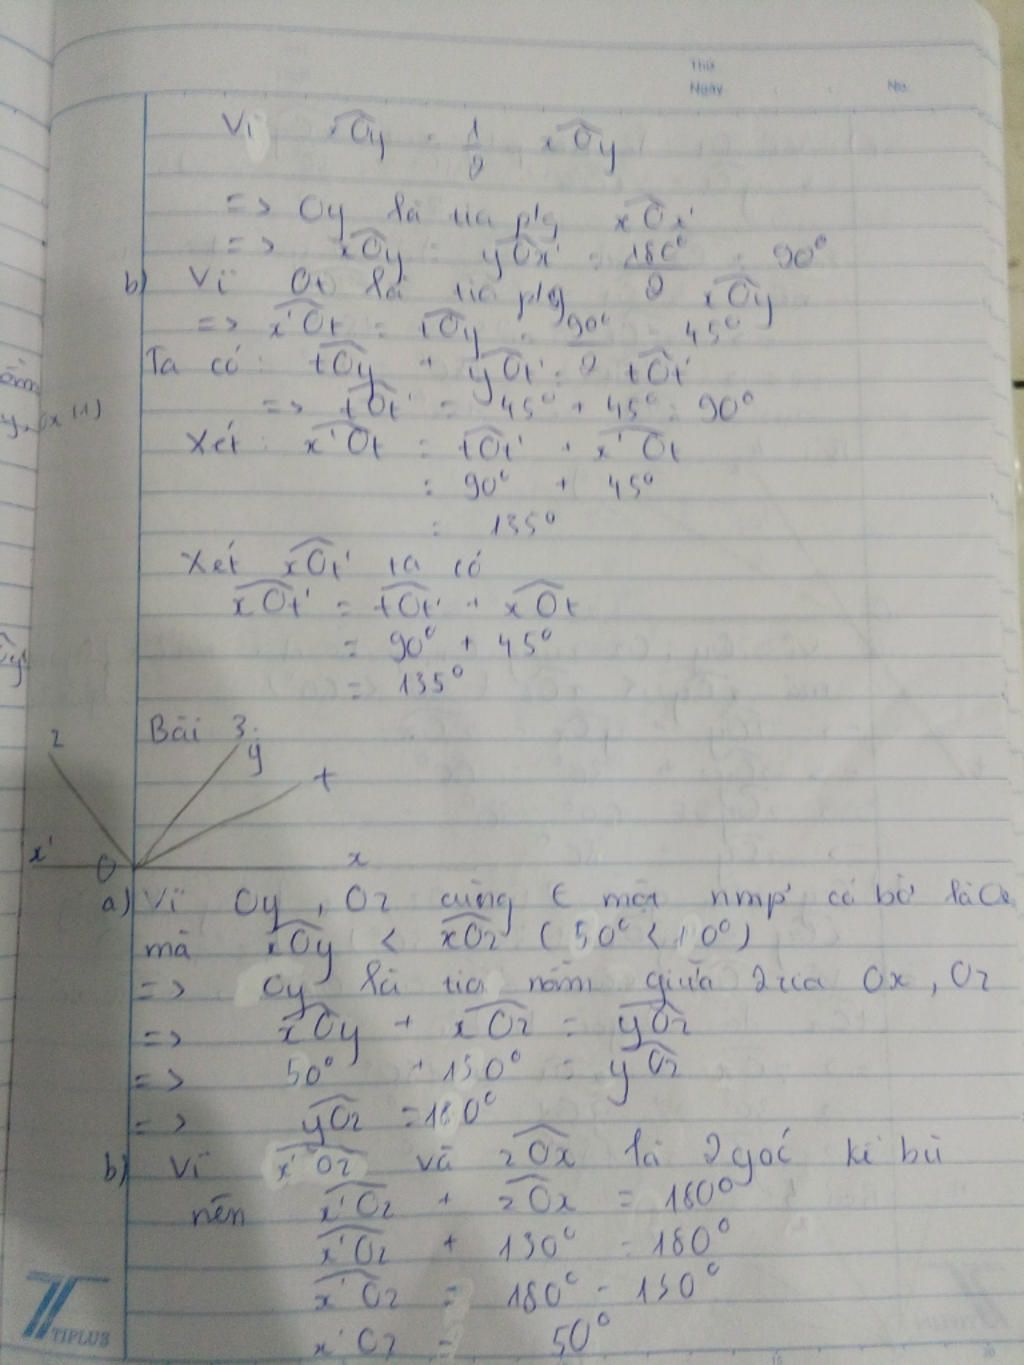 Thứ
Ngày : : No.
Vì xOy = 1/2 xOy
=> Oy là tia p/g xOx'
=> xOy = yOx' = 180°/2 = 90°
b) Vì Ot là tia p/g xOy
=> x'Ot = tOy = 90°/2 = 45°
Ta có: tOy + yOt' = tOt'
=> tOt' = 45° + 45° = 90°
Xét: x'Ot = tOt' + x'Ot
= 90° + 45°
= 135°
Xét xOt' ta có
xOt' = tOt' + xOt
= 90° + 45°
= 135°
Bài 3:
z
y
t
x' O x
a) Vì Oy, Oz cùng ∈ một nmp' có bờ là
mà xOy < xOz (50° < 0°)
=> Oy là tia nằm giữa 2 tia Ox, Oz
=> xOy + xOz = yOz
=> 50° + 130° = yOz
=> yOz = 180°
b) Vì x'Oz và zOx là 2 góc kề bù
nên x'Oz + zOx = 180°
x'Oz + 130° = 180°
x'Oz = 180° - 130°
x'Oz = 50°
TIPLUS